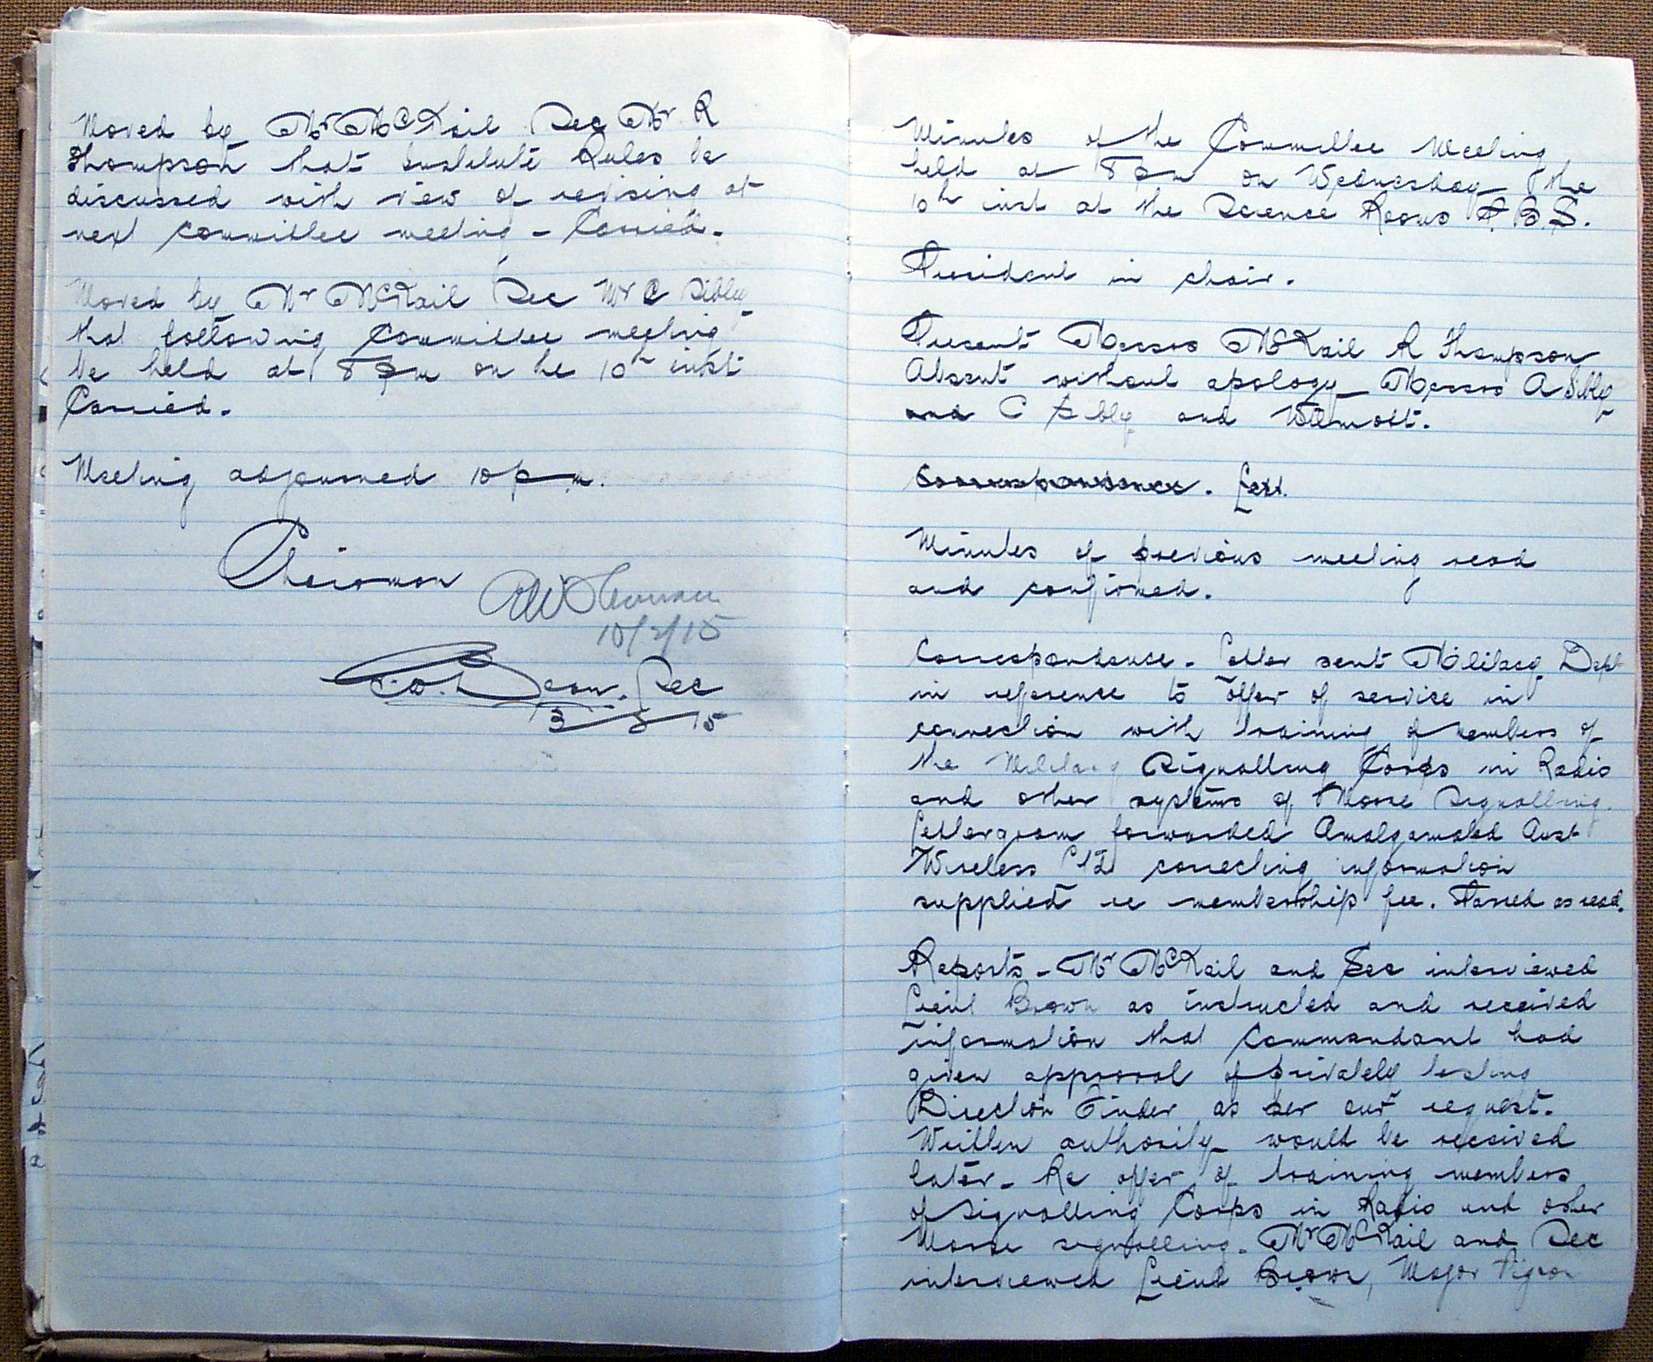 Moved by Mr McKail Sec Mr R
Thompson that Institute Rules be
discussed with view of revising at
next committee meeting - Carried.
Moved by Mr McKail Sec Mr C Sibly
that following Committee meeting
be held at 8 pm on he 10th inst
Carried.
Meeting adjourned 10 pm.
Chairman
10/2/15
Sec
Minutes of the Committee Meeting
held at 8 pm on Wednesday the
10th inst at the Science Rooms A.B.S.
President in chair.
Present Messrs McKail R Thompson
Absent without apology Messrs A Sibly
and C Sibly and Wilmott.
Correspondence.
Minutes of previous meeting read
and confirmed.
Correspondence - Letter sent Military Dept
in reference to offer of service in
connection with training of members of
the Military Signalling Corps in Radio
and other systems of Morse signalling.
Lettergram forwarded Amalgamated Aust
Wireless Ltd correcting information
supplied re membership fee. Passed as read.
Reports - Mr McKail and Sec interviewed
Lieut Brown as instructed and received
information that Commandant had
given approval of privately testing
Direction Finder as per our request.
Written authority would be received
later - Re offer of training members
of Signalling Corps in Radio and other
Morse signalling. Mr McKail and Sec
interviewed Lieut Brown, Major